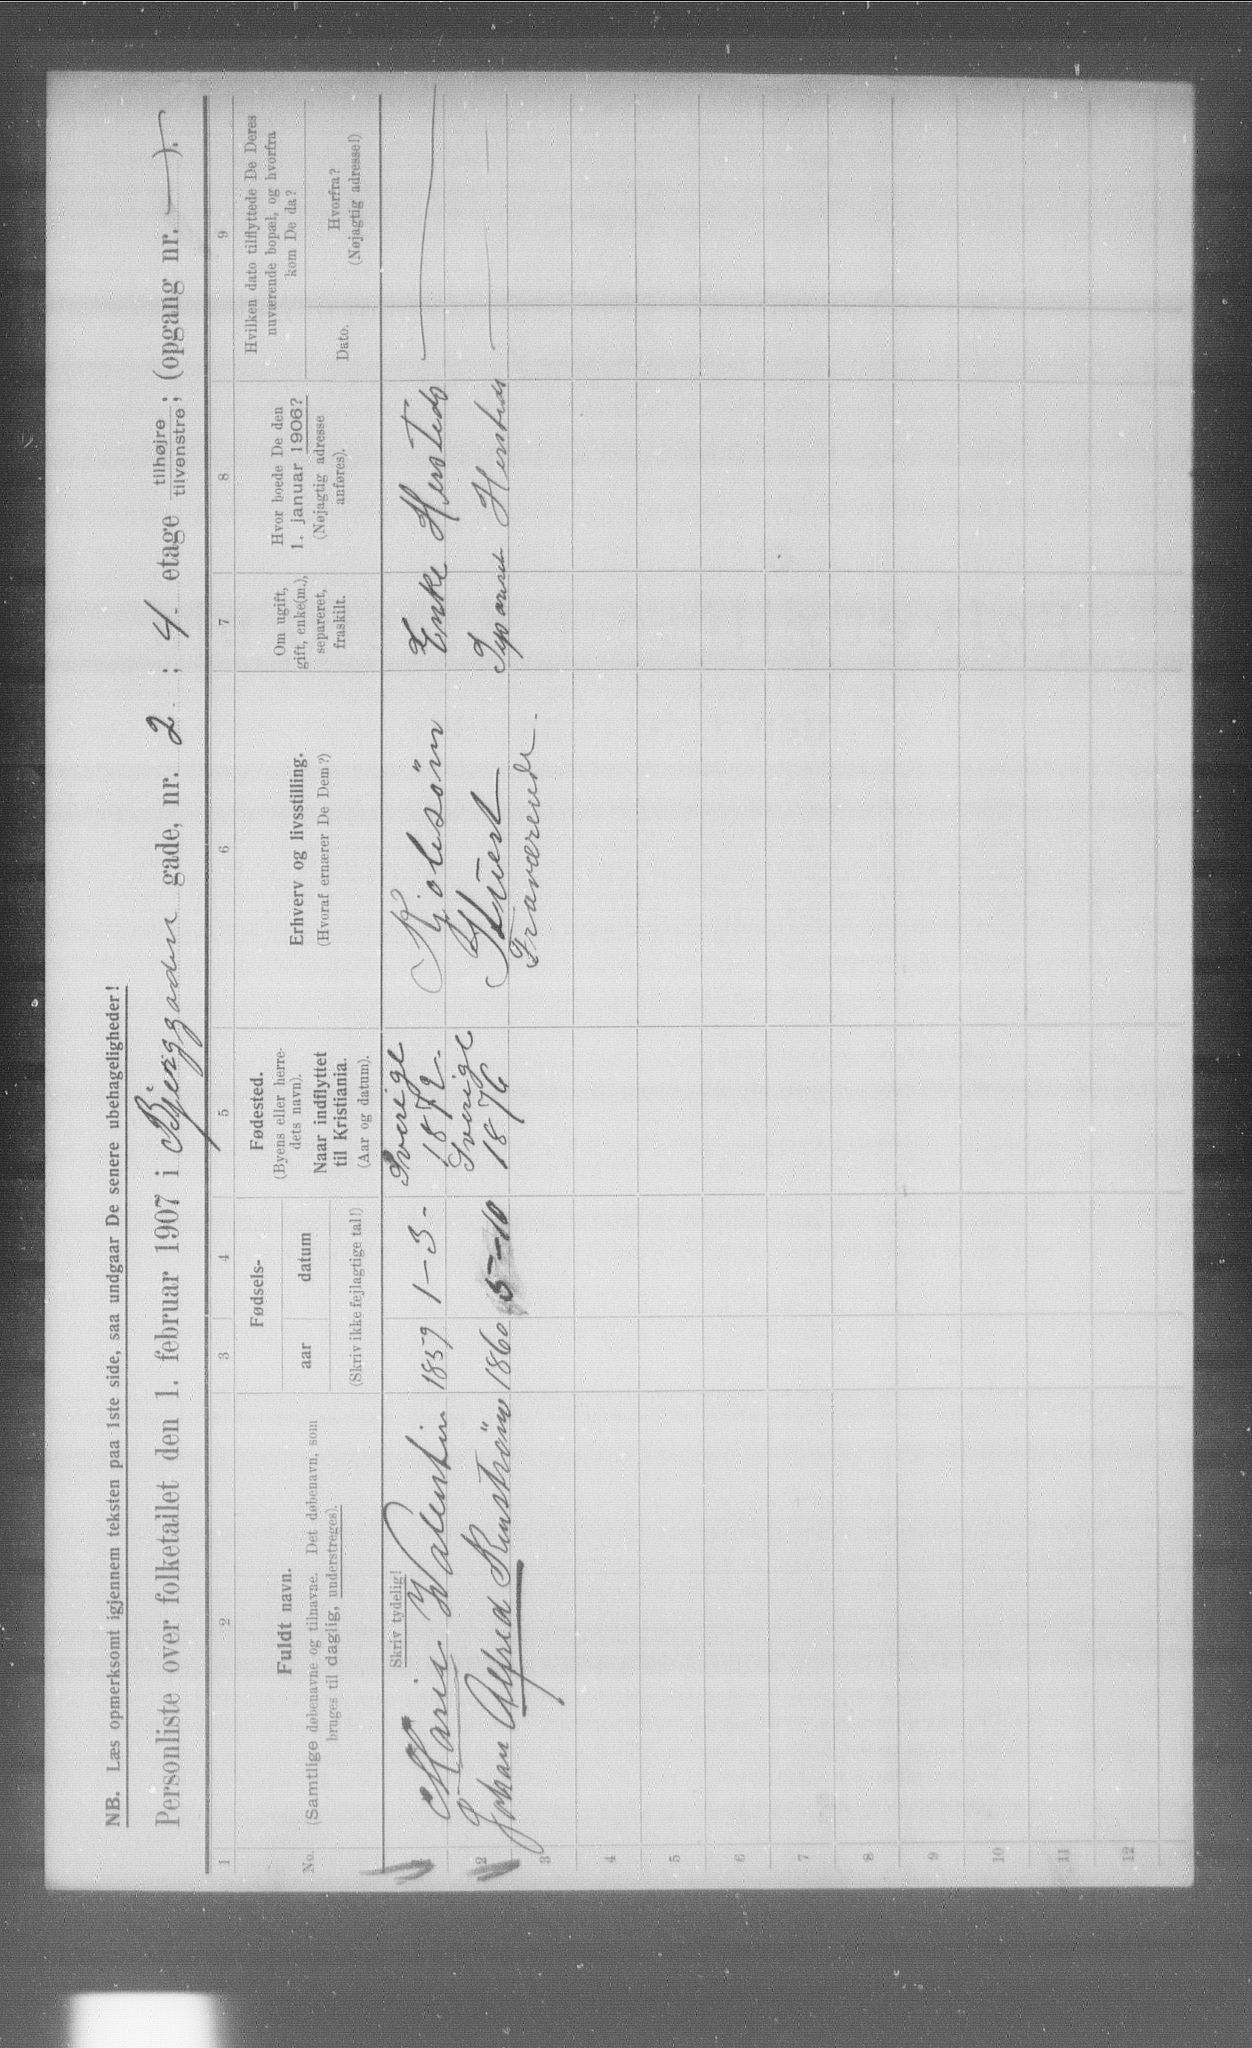 NB. Læs opmerksomt igjennem teksten paa 1ste side, saa undgaar De senere ubehageligheder!
Personliste over folketallet den 1. februar 1907 i Bjerggaden gade, nr. 2 ; 4. etage tilhøjre tilvenstre; (opgang nr. — ).
1 2 3 4 5 6 7 8 9
No.
Fuldt navn.
(Samtlige døbenavne og tilnavne. Det døbenavn, som
bruges til daglig, understreges).
Fødsels-
aar datum
(Skriv ikke fejlagtige tal!)
Fødested.
(Byens eller herre-
dets navn).
Naar indflyttet
til Kristiania.
(Aar og datum).
Erhverv og livsstilling.
(Hvoraf ernærer De Dem?)
Om ugift,
gift, enke(m.),
separeret,
fraskilt.
Hvor boede De den
1. januar 1906?
(Nøjagtig adresse
anføres).
Hvilken dato tilflyttede De Deres
nuværende bopæl, og hvorfra
kom De da?
Dato.
Hvorfra?
(Nøjagtig adresse!)
Skriv tydelig!
1 Maria Valentin 1859 1-3- Sverige 1872 Enke
2 Johan Alfred 1860 5-10 Sverige 1876
Fraværende.
3
4
5
6
7
8
9
10
11
12